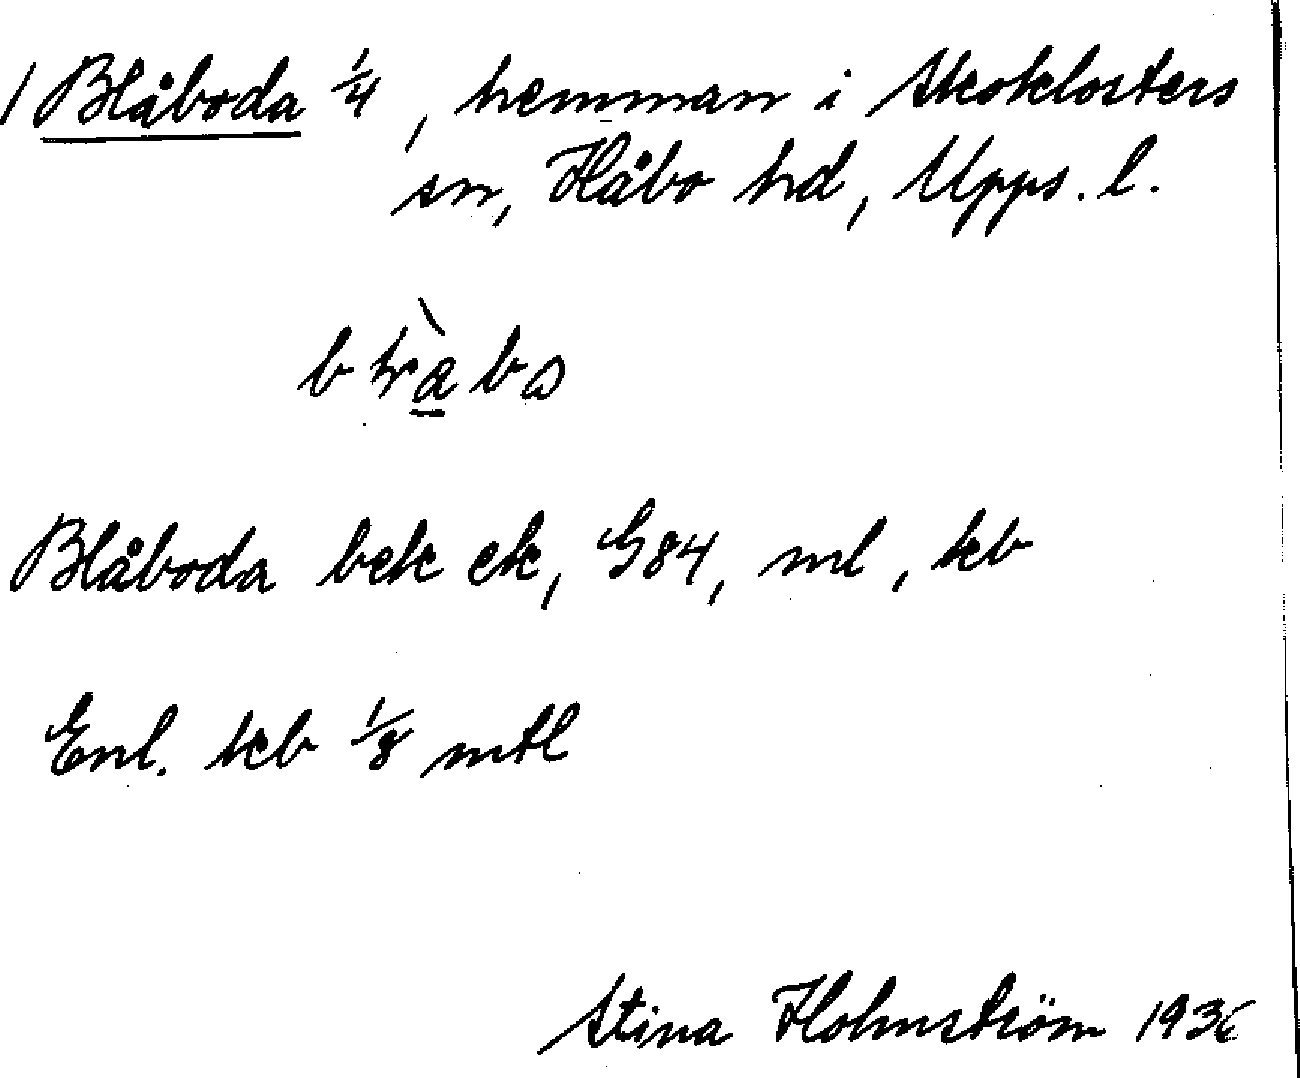 / Blåboda 1/4, hemman i Skoklosters
sn, Håbo hd, Upps. l.
Blåboda bek ek, G84, ml, kb
Enl. kb 1/8 mtl
Stina Holmström 1936